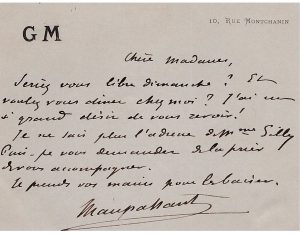 GM
10, RUE MONTCHANIN
Chère Madame,
Seriez vous libre dimanche ? Et
voulez vous diner chez moi ? J'ai un
si grand désir de vous revoir !
Je ne sais plus l'adresse de Mme Gilly
Puis-je vous demander de la prier
de vous accompagner.
Je prends vos mains pour les baiser.
Maupassant